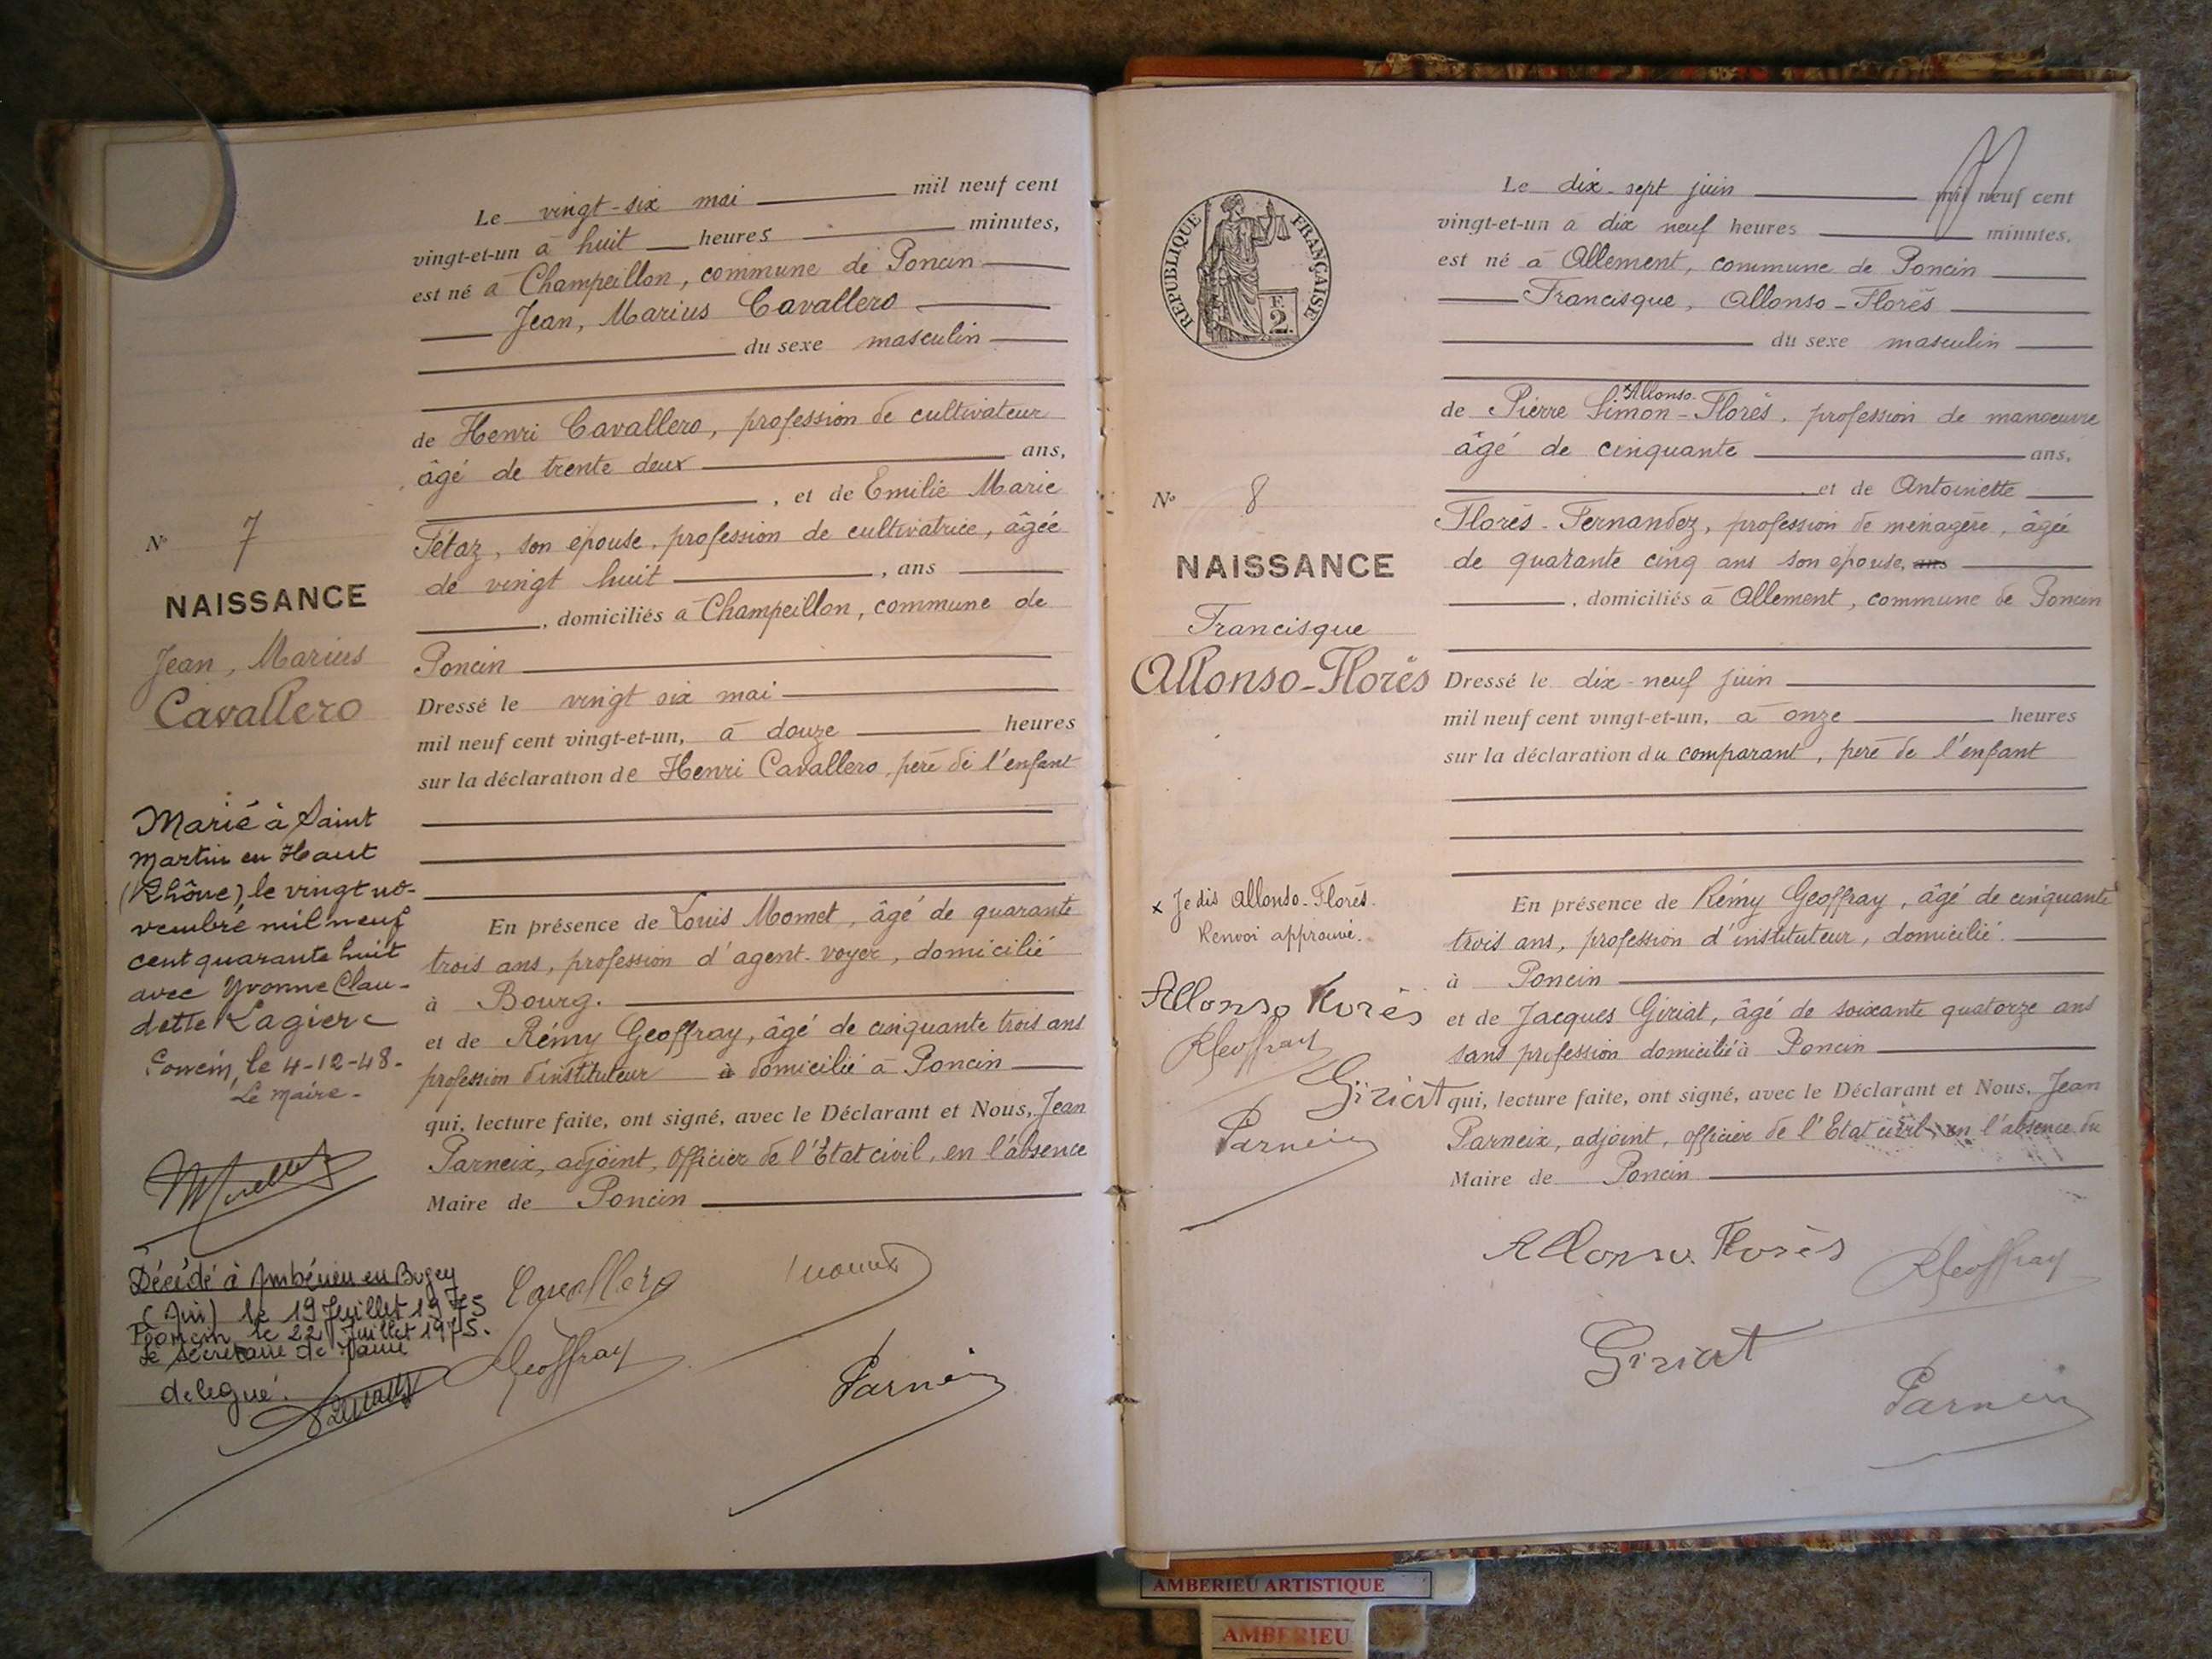 Le vingt-six mai mil neuf cent
vingt-et-un à huit heures minutes,
est né à Champeillon, commune de Poncin
Jean, Marius Cavallero
du sexe masculin
de Henri Cavallero, profession de cultivateur
âgé de trente deux ans,
, et de Emilie Marie
Tétaz, son épouse, profession de cultivatrice, âgée
de vingt huit , ans
, domiciliés à Champeillon, commune de
Poncin
Dressé le vingt six mai
mil neuf cent vingt-et-un, à douze heures
sur la déclaration de Henri Cavallero, père de l'enfant
En présence de Louis Momet, âgé de quarante
trois ans, profession d'agent-voyer, domicilié
à Bourg.
et de Rémy Geoffray, âgé de cinquante trois ans
profession d'instituteur à domicilié à Poncin
qui, lecture faite, ont signé, avec le Déclarant et Nous, Jean
Parneix, adjoint, officier de l'Etat civil, en l'absence
Maire de Poncin
Cavallero
RGeoffray
Parneix
No 7
NAISSANCE
Jean, Marius
Cavallero
Marié à Saint
Martin en Haut
(Rhône), le vingt no-
vembre mil neuf
cent quarante huit
avec Yvonne Clau-
dette Lagier
Poncin, le 4-12-48-
Le Maire-
Décédé à Ambérieu en Bugey
(Ain) le 19 Juillet 1975
Poncin le 22 Juillet 1975.
le secrétaire de Mairie
délégué.
REPUBLIQUE FRANÇAISE
F.
2
No 8
NAISSANCE
Francisque
Allonso-Florès
x Je dis Allonso-Florès.
Renvoi approuvé.
Allonso Florès
RGeoffray
Giriat
Parneix
Le dix-sept juin mil neuf cent
vingt-et-un à dix neuf heures minutes,
est né à Allement, commune de Poncin
Francisque, Allonso-Florès
du sexe masculin
x Allonso-
de Pierre Simon-Florès, profession de manoeuvre
âgé de cinquante ans,
et de Antoinette
Florès-Fernandez, profession de ménagère, âgée
de quarante cinq ans son épouse, ans
, domiciliés à Allement, commune de Poncin
Dressé le dix-neuf juin
mil neuf cent vingt-et-un, à onze heures
sur la déclaration du comparant, père de l'enfant
En présence de Rémy Geoffray, âgé de cinquante
trois ans, profession d'instituteur, domicilié
à Poncin
et de Jacques Giriat, âgé de soixante quatorze ans
sans profession domicilié à Poncin
qui, lecture faite, ont signé, avec le Déclarant et Nous, Jean
Parneix, adjoint, officier de l'Etat civil, en l'absence du
Maire de Poncin
Allonso Florès
RGeoffray
Giriat
Parneix
AMBERIEU ARTISTIQUE
AMBERIEU